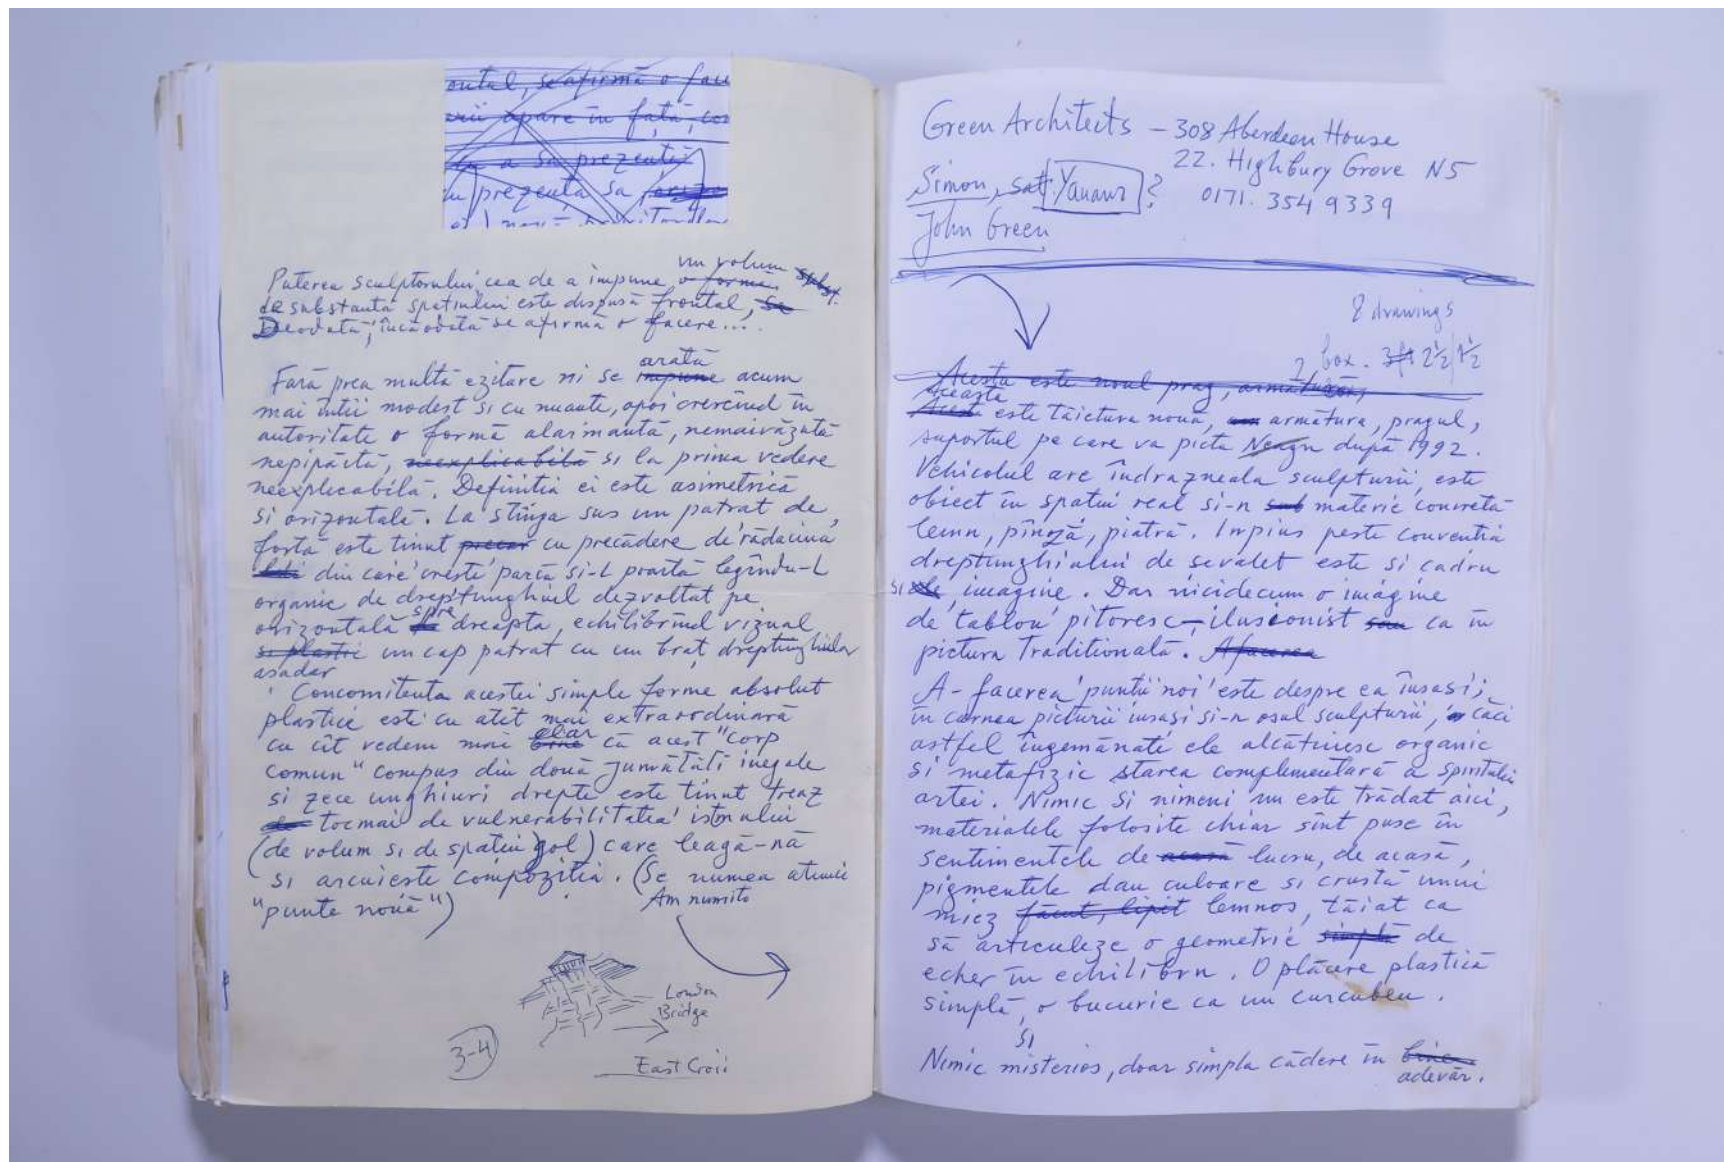 ontal, se afirmă o face
rii apare în față, con
a sa prezență
în prezența sa
Puterea sculptorului, cea de a impune o forma un volum subst.
de substanta spatiului este dispusă frontal, se
Deodată, încăodată se afirmă o facere....
Fară prea multă ezitare ni se impune arată acum
mai întîi modest si cu nuante, apoi crercînd în
autoritate o formă alarmantă, nemaivăzută
nepipăită, neexplicabilă si la prima vedere
neexplicabilă. Definitia ei este asimetrică
si orizontală. La stînga sus un patrat de
fortă este tinut precar cu precădere de rădăcina
din care creste parcă si-l poartă legîndu-l
organic de dreptunghiul dezvoltat pe
orizontală spre dreapta, echilibrînd vizual
si plastic un cap patrat cu un braț dreptunghiular
asadar
Concomitenta acestei simple forme absolut
plastice este cu atît mai extraordinară
cu cît vedem mai bine clar că acest "corp
comun" compus din două jumătăti inegale
si zece unghiuri drepte este tinut treaz
de tocmai de vulnerabilitatea istmului
(de volum si de spatiu gol) care leagă-nă
si arcuieste compozitia. (Se numea atunci
Am numito
"punte nouă")
London
Bridge
3-4
East Croii
Green Architects – 308 Aberdeen House
22. Highbury Grove N5
Simon, sat. Yananz?
0171. 354 9339
John Green
8 drawings
2 box. 3ft 2½/1½
Acesta este noul prag, armătura,
Aceasta
Acest este tăietura nouă, armătura, pragul,
suportul pe care va picta Neagu după 1992.
Vehicolul are îndrazneala sculpturii, este
obiect în spatiu real si-n sub materie concretă
lemn, pînză, piatră. Inpius peste conventia
dreptunghiului de sevalet este si cadru
si imagine. Dar nicidecum o imagine
de tablou pitoresc-, ilusionist sau ca în
pictura Traditională. Afacerea
A-facerea 'puntii noi' este despre ea însasi;
în carnea picturii însasi si-n osul sculpturii, căci
astfel îngemănate ele alcătuiesc organic
si metafizic starea complementară a spiritului
artei. Nimic si nimeni nu este trădat aici,
materialele folosite chiar sînt puse în
sentimentele de acasă lucru, de acasă,
pigmentele dau culoare si crustă unui
miez făcut, lipit lemnos, tăiat ca
să articuleze o geometrie simplă de
echer în echilibru. O plăcere plastică
simplă, o bucurie ca un curcubeu.
si
Nimic misterios, doar simpla cădere în bine
adevăr.